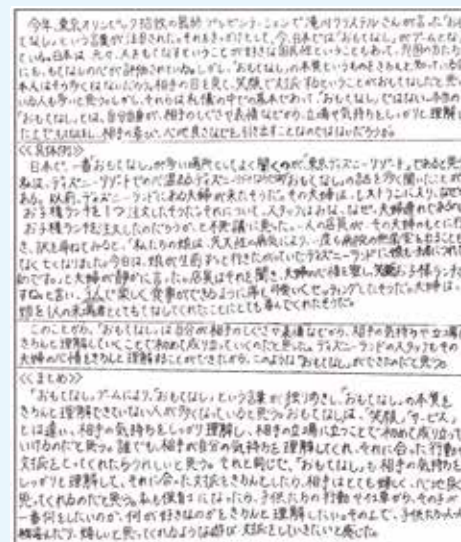 今年、東京オリンピック招致の最終プレゼンテーションで滝川クリステルさんが言った"おも
てなし"という言葉が注目された。それをきっかけとして、今、日本では"おもてなし"がブームとな
ている。日本は元々、人をもてなすということが好きな国民性ということもあって、外国の方たち
にも、もてなしの心が評価されている。しかし"おもてなし"の本質というものをきちんと知っている日
本人はそう多くはないだろう。相手の目を見て、笑顔で対応するということがおもてなしだと思
いる人も多いと思う。しかし、それらは礼儀の中での基本であって"おもてなし"ではない。本当の
「おもてなし」とは、自分自身が、相手のしぐさや表情などから、立場や気持ちをしっかりと理解し
相手の喜び、心地良さなどを引き出すことなのではないだろうか。
≪具体例≫
日本で、一番おもてなしが多い場所としてよく聞くのが"東京ディズニーリゾート"であると思う
私は、ディズニーリゾートでの おもてなしの話を多く聞いたことが
ある。以前、ディズニーランドにある夫婦が来たそうだ。その夫婦は、レストランに入り、なぜか
お子様ランチを1つ注文したそうだ。それについて、スタッフはみな、なぜ、夫婦連れであるのに
お子様ランチを注文したのだろうか、と不思議に思った。一人の店員が、その夫婦のもとに行
き、訳を尋ねてみると、「私たちの娘は、先天性の病気により、一度も病院の無菌室を出ることも
なく亡くなりました。今日は、娘が生前ずっと行きたがっていたディズニーランドに
です。」と夫婦が静かに言った。店員はそれを聞き、夫婦の心情を察し、笑顔でお子様ランチ
すねと言い、3人で楽しく食事ができるように席も可愛くセッティングしたそうだ。夫婦は、
娘を1人の来場者としてもてなしてくれたことにとても喜んでくれたそうだ。
このことから、"おもてなし"は自分が相手のしぐさや表情などから、相手の気持ちや立場
きちんと理解していくことで初めて成り立っていくのだと思った。ディズニーランドのスタッフもその
夫婦の心情をきちんと理解することができたから、このような"おもてなし"ができたのだと思う。
≪まとめ≫
"おもてなし"ブームにより、"おもてなし"という言葉が独り歩きし、"おもてなし"の本質を
きちんと理解できていない人が多くなっていると思う。おもてなしは、"笑顔"、"サービス"
とは違い、相手の気持ちをしっかり理解し、相手の立場に立つことで初めて成り立って
いけるのだと思う。誰でも、相手が自分の気持ちを理解してくれ、それに合った行動や
対応をとってくれたらうれしいと思う。それと同じで、"おもてなし"も相手の気持ちを
しっかりと理解して、それに合った対応をきちんとしたら、相手はとても嬉しく、心地良く
思ってくれるのだと思う。私も保育士になったら、子供たちの行動やしぐさから、その子が
一番何をしたいのか、何が好きなのかをきちんと理解したい。その上で、子供たち一人一
喜んだり、嬉しいと思ってくれるような遊び、対応をしていきたいと感じた。